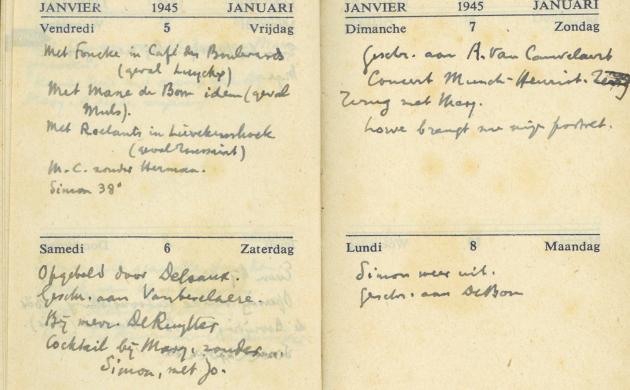 JANVIER 1945 JANUARI
Vendredi 5 Vrijdag
Met Foncke in Café des Boulevards
(geval Luyckx)
Met Mane de Bom idem (geval
Muls).
Met Roelants in Lievekenshoek
(geval Toussaint)
M.C. zonder Herman.
Simon 38°
Samedi 6 Zaterdag
Opgebeld door Delvaux.
Geschr. aan Vanbeselaere.
Bij mevr. De Ruyter
Cocktail bij Mary, zonder
Simon, met Jo.
JANVIER 1945 JANUARI
Dimanche 7 Zondag
Geschr. aan A. Van Cauwelaert
Concert Munch-Henriot.
Terug met Mary.
Lowe brengt me mijn portret.
Lundi 8 Maandag
Simon weer uit.
Geschr. aan De Bom